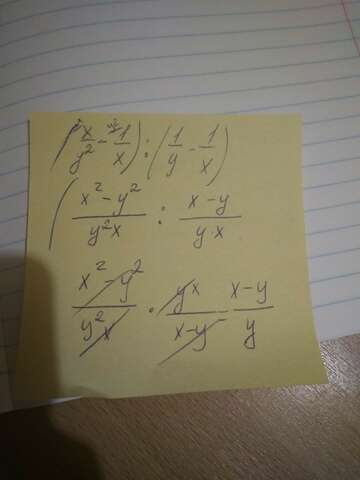 (x/y² - 1/x) : (1/y - 1/x)
(x² - y²/y²x : x - y/yx
x² - y²/y²x · yx/x - y = x - y/y